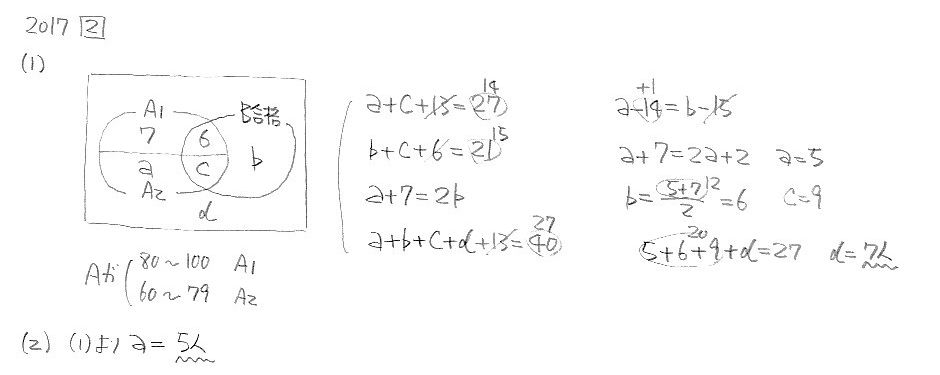 2017 2
(1)
A1 B合格
7 6
a c b
A2
d
A が 80〜100 A1
60〜79 A2
a+c+13=27 14
b+c+6=21 15
a+7=2b
a+b+c+d+13=40 27
a-14=b-15 +1
a+7=2a+2 a=5
b=(5+7)/2=6 12 c=9
5+6+9+d=27 20 d=7人
(2) (1)より a=5人